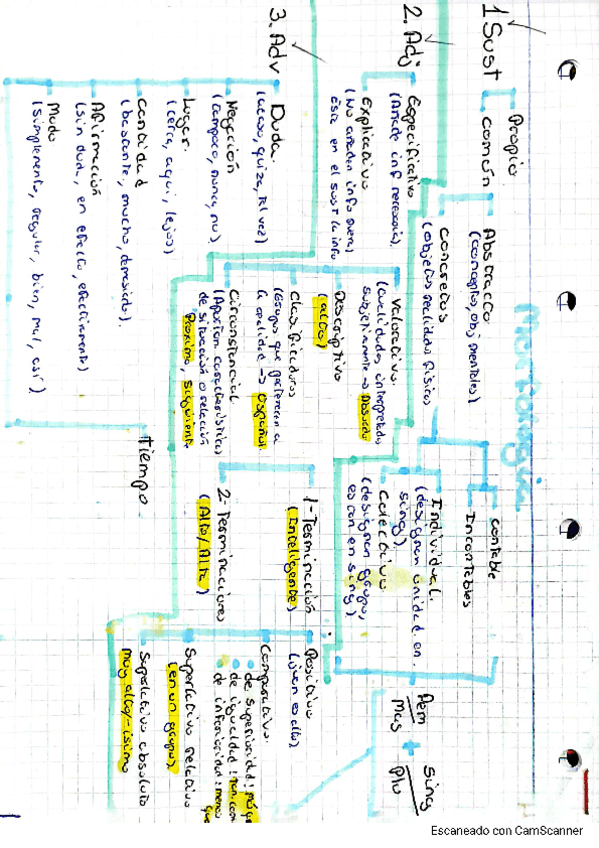 Morfología
1 Sust
Propio
común
Abstracto
(conceptos, obj mentales)
concretos
(objetos realidad física)
contable
Incontables
Individual:
(designan unidad en
sing).
Colectivo
(designan grupo,
escon en sing)
Fem
Mas
+
Sing
Plu
2. Adj
Especificativo
(Añade inf necesaria).
Explicativo
(No añaden info nueva
ésta en el sust la info
valorativo.
(cualidades interpretadas
subjetivamente →
Descriptivo
(alto)
Clasificadores
(Grupo que pertenecen a
la cualidad → español.
Circunstancial
(Aportan características
de situación o relación
Próximo, siguiente
1- Terminación
(Inteligente)
2- Terminaciones
(Alto/Alta)
Positivo
(Juan es alto)
Comparativo.
de superioridad: más que
de igualdad: tan.com
de inferioridad: menos que
Superlativo relativo
(en un grupo)
Superlativo absoluto
muy alto/-ísimo
3. Adv
Duda.
(acaso, quizá, tal vez)
Negación
(tampoco, nunca, no).
Lugar.
(cerca, aquí, lejos)
cantidad
(bastante, mucho, demasiado).
Afirmación
(sin duda, en efecto, efectivamente)
Modo
(simplemente, regular, bien, mal, así)
Tiempo
Escaneado con CamScanner